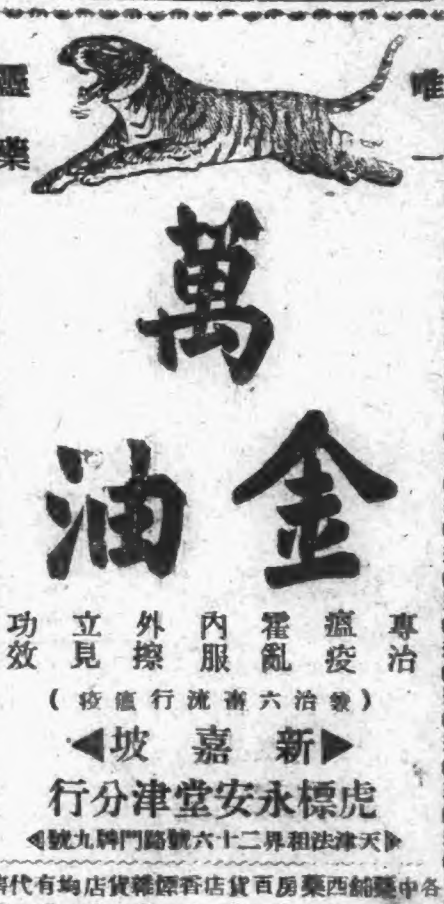 唯一
靈藥
萬
金油
專治
瘟疫
霍亂
內服
外擦
立見
功效
治六畜流行瘟疫)
新嘉坡
虎標永安堂津分行
天津法租界二十六號路門牌九號
各中藥鋪西藥房百貨店香煙雜貨店均有代